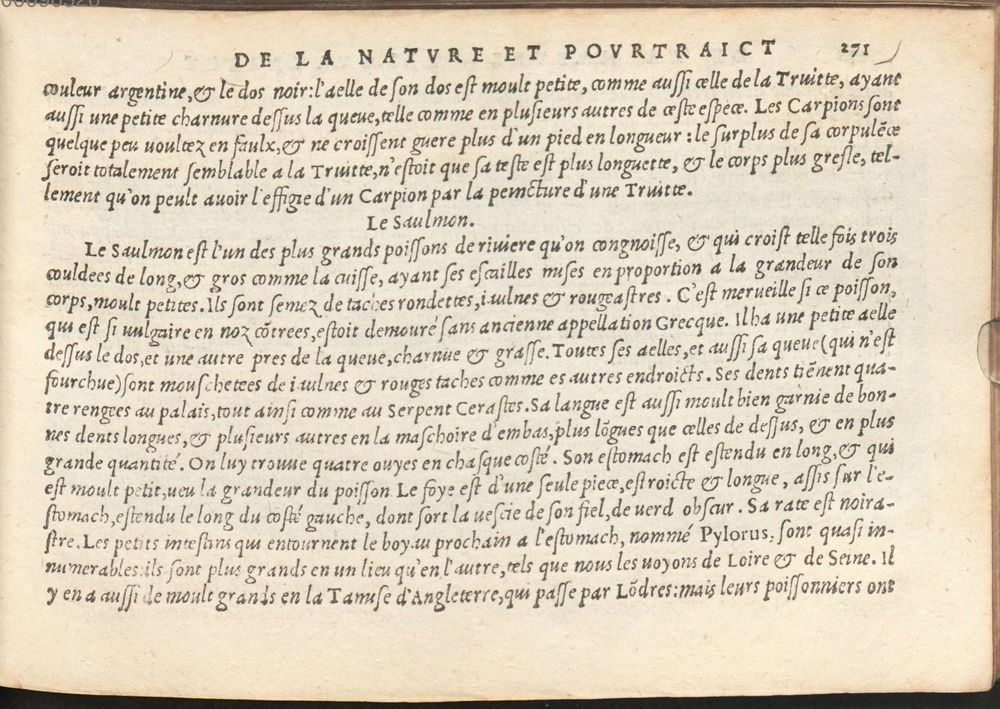 DE LA NATVRE ET POVRTRAICT 271
couleur argentine, & le dos noir: l'aelle de son dos est moult petite, comme aussi celle de la Truitte, ayant
aussi une petite charnure dessus la queue, telle comme en plusieurs autres de ceste espece. Les Carpions sont
quelque peu voultez en faulx, & ne croissent guere plus d'un pied en longueur: le surplus de sa corpulēce
seroit totalement semblable a la Truitte, n'estoit que sa teste est plus longuette, & le corps plus gresle, tel-
lement qu'on peult avoir l'effigie d'un Carpion par la peincture d'une Truitte.
Le Saulmon.
Le Saulmon est l'un des plus grands poissons de riviere qu'on congnoisse, & qui croist telle fois trois
couldees de long, & gros comme la cuisse, ayant ses escailles mises en proportion a la grandeur de son
corps, moult petites. Ils sont semez de taches rondettes, iaulnes & rougeastres. C'est merveille si ce poisson,
qui est si vulgaire en noz cōtrees, estoit demouré sans ancienne appellation Grecque. Il ha une petite aelle
dessus le dos, et une autre pres de la queue, charnue & grasse. Toutes ses aelles, et aussi sa queue (qui n'est
fourchue) sont mouschetees de iaulnes & rouges taches comme es autres endroicts. Ses dents tiēnent qua-
tre rengees au palais, tout ainsi comme au Serpent Cerastes. Sa langue est aussi moult bien garnie de bon-
nes dents longues, & plusieurs autres en la maschoire d'embas, plus lōgues que celles de dessus, & en plus
grande quantité. On luy trouve quatre ouyes en chasque costé. Son estomach est estendu en long, & qui
est moult petit, veu la grandeur du poisson Le foye est d'une seule piece, estroicte & longue, assis sur l'e-
stomach, estendu le long du costé gauche, dont sort la vescie de son fiel, de verd obscur. Sa rate est noira-
stre. Les petits intestins qui entournent le boyau prochain a l'estomach, nommé Pylorus, sont quasi in-
numerables: ils sont plus grands en un lieu qu'en l'autre, tels que nous les voyons de Loire & de Seine. Il
y en a aussi de moult grands en la Tamise d'Angleterre, qui passe par Lōdres: mais leurs poissonniers ont